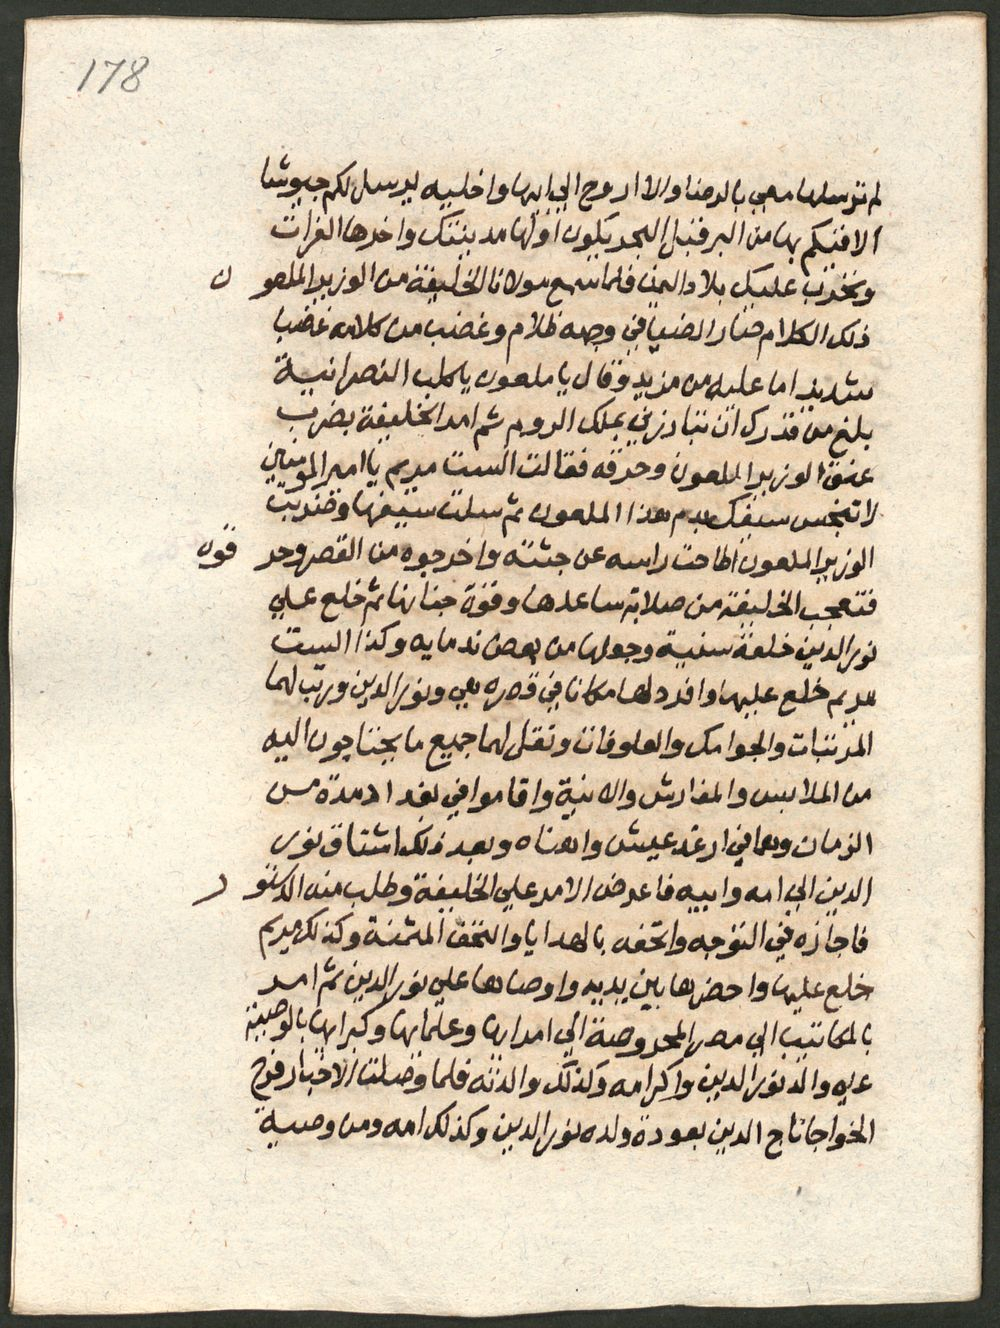 178
لم ترسلها معي بالرضا والا اروح الي ابيها واخليه يرسل لكم جيوشا
الاقيكم بها من البر قبل البحر يكون اولها مدينتك واخرها الفرات
ويخرب عليك بلاد اليمن فلما سمع مولانا الخليفة من الوزير الملعون
ذلك الكلام صار الضيا في وجهه ظلام وغضب من كلامه غضب
شديد اما عليه من مزيد وقال يا ملعون يا كلب النصرانية
بلغ من قدرك ان تبادرني بملك الروم ثم امر الخليفة بضرب
عنق الوزير الملعون وحرقه فقالت الست مريم يا امير المومنين
لا تنجس سيفك بدم هذا الملعون ثم سلت سيفها وضربت
الوزير الملعون اطاحت راسه عن جثته واخرجوه من القصر وحرقوه
فتعجب الخليفة من صلابة ساعدها وقوة جنانها ثم خلع علي
نور الدين خلعة سنية وجعلها من بعض ندمايه وكذا الست
مريم خلع عليها وافرد لها مكانا في قصره هي ونور الدين ورتب لهما
المرتبات والجوامك والعلوفات ونقل لهما جميع ما يحتاجون اليه
من الملابس والمفارش والانية واقاموا في بغداد مدة من
الزمان وهما في ارغد عيش واهناه وبعد ذلك اشتاق نور
الدين الي امه وابيه فاعرض الامر علي الخليفة وطلب منه الدستور
فاجازه في التوجه واتحفه بالهدايا والتحف المثمنة وكذلك مريم
خلع عليها واحضرها بين يديه واوصاها علي نور الدين ثم امر
بالمكاتيب الي مصر المحروصة الي امرايها وعلمايها وكبرايها بالوصية
علي والد نور الدين واكرامه وكذلك والدته فلما وصلت الاخبار فرح
الخواجا تاج الدين بعودة ولده نور الدين وكذلك امه ومن وصية